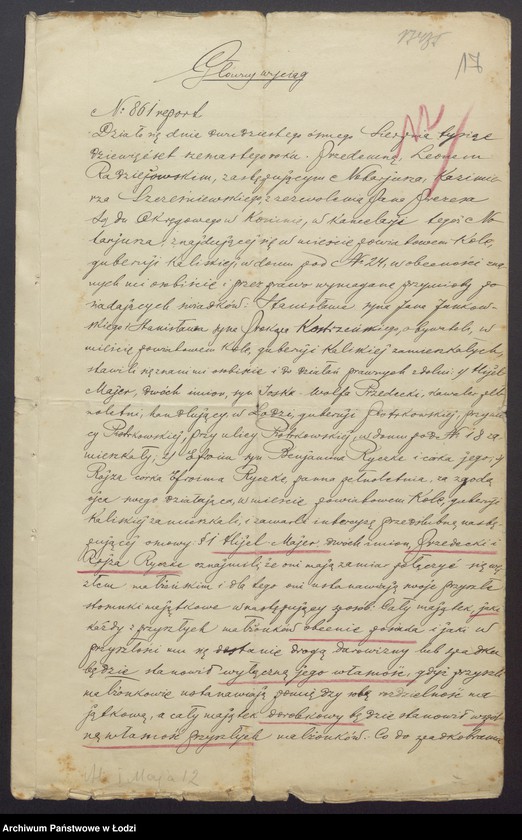 17
Główny wyciąg
№ 861 repert
Działo się dnia dwudziestego ósmego Sierpnia tysiąc
dziewięćset szesnastego roku. Przedemną, Leonem
Radziejowskim, zastępującym Notarjusza, Kazimie-
rza Szcześniewskiego, z zezwolenia Pana Prezesa
Sądu Okręgowego w Koninie, w kancelarji tegoż No-
tarjusza, znajdującej się w mieście powiatowem Kole,
gubernji Kaliskiej, w domu pod № 24, w obecności zna-
nych mi osobiście i przez prawo wymagane przymioty po-
siadających świadków: Stanisława syna Jana Jankow-
skiego i Stanisława syna Prokopa obywateli, w
mieście powiatowem Kole, gubernji Kaliskiej zamieszkałych,
stawili się znani mi osobiście i do działań prawnych zdolni: 1/ Hijel
Majer, dwóch imion, syn Joska-Wolfa Przedecki, kawaler peł-
noletni, handlujący, w Łodzi, gubernji Piotrkowskiej, przy uli-
cy Piotrkowskiej, w domu pod № 18 za-
mieszkały, 2/ Efroim syn Benjamina Ryczke i córka jego, 3/
Rojza córka Efroima Ryczke panna pełnoletnia, za zgodą
ojca swego działająca, w mieście powiatowem Kole, gubernji
Kaliskiej zamieszkali, i zawarli intercyzę przedślubną nastę-
pującej osnowy: §1 Hijel Majer, dwóch imion, Przedecki i
Rojza Ryczke oznajmili, że oni mają zamiar połączyć się wę-
złem małżeńskim i dla tego oni ustanawiają swoje przyszłe
stosunki majątkowe w następujący sposób: Cały majątek, jaki
każdy z przyszłych małżonków obecnie posiada i jaki w
przyszłości mu się dostanie drogą darowizny lub spadku
będzie stanowił wyłączną jego własność, gdyż przyszli
małżonkowie ustanawiają pomiędzy sobą rozdzielność ma-
jątkową, a cały majątek dorobkowy będzie stanowił wspól-
ną własność przyszłych małżonków. Co do spadkobrania
1 Maja 12
Archiwum Państwowe w Łodzi